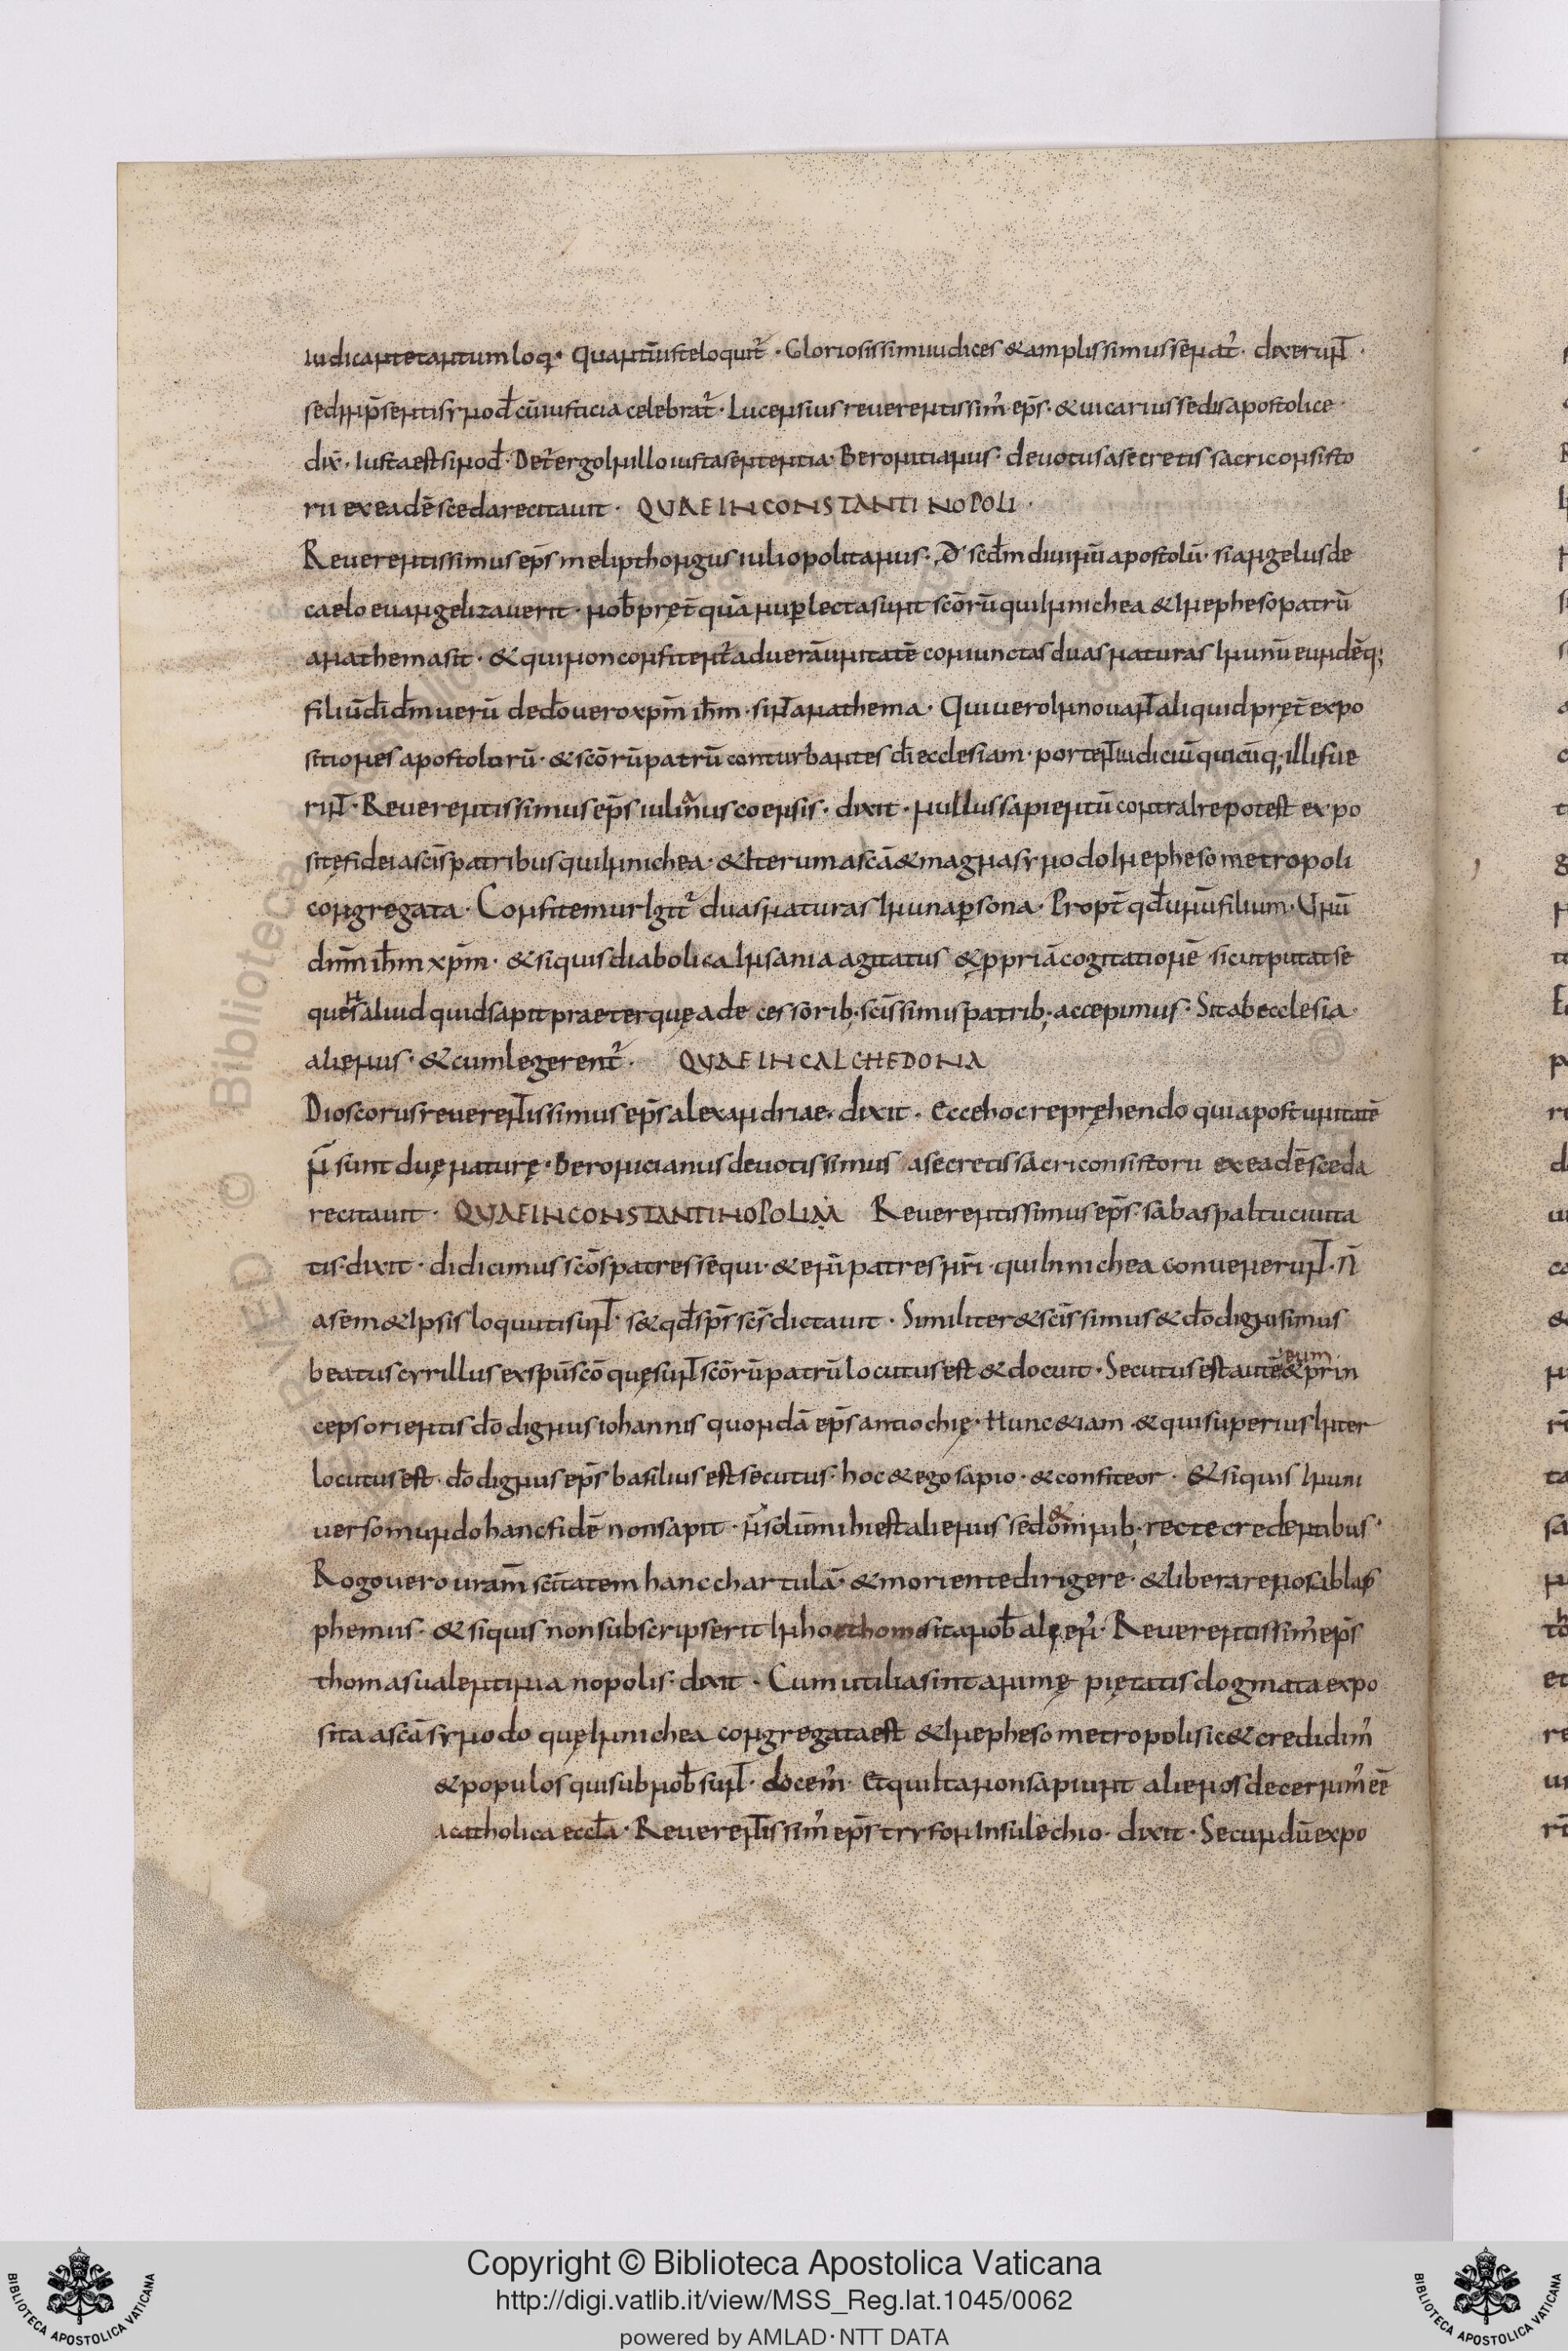 iudicant et aut um loq̄· quantū iuste loquit̄· Gloriosissimi iudices & amplissimus senat̄· dixerunt̄·
sed inp̄sentis synod̄ cū iusticia celebrat̄· Lucensius reuerentissim̄ ep̄s· & uicarius sedis apostolice·
dix̄· Iusta est sinod̄· Det̄ ergo In illo iusta sententia· Beronitianus· deuotus a secretis sacri consisto
rii ex eadē sceda recitauit· QUAE IN CONSTANTINOPOLI·
Reuerentissimus ep̄s melipthongus iuliopolitanus· scd̄m diuinū apostolū· si angelus de
caelo euangelizauerit· nob̄ pręt̄ quā nup lecta sunt scōrū qui In nichea & In epheso patrū
anathema sit· & qui non confitent̄ ad uerā unitatē coniunctas duas naturas In unū eundēq;
filiū di d̄m uerū de dō uero xp̄m ih̄m· sint̄ anathema· Qui uero Innouant̄ aliquid pręt̄ expo
sitiones apostolorū· & scōrū patrū conturbantes di ecclesiam· portent̄ iudiciū quicūq; illi fue
rint̄· Reuerentissimus ep̄s iulinus coensis· dixit· nullus sapientū contra Ire potest expo
sitę fidei a scis patribus qui In nichea· & Iterum a scā & magna synodo In epheso metropoli
congregata· Confitemur Igit̄ duas naturas In una psona· Propt̄ qd̄ unū filium· Unū
dn̄m ih̄m xp̄m· & si quis diabolica Insania agitatus & ppriā cogitationē sicut putat se
quens aliud quid sapit praeter quę a decessorib; scissimis patrib; accepimus· Sit ab ecclesia
alienus· & cum legerent̄· QUAE IN CALCHEDONA
Dioscorus reuerent̄issimus ep̄s alexandriae· dixit· Ecce hoc repręhendo quia post unitatē
n̄ sunt duę naturę· Beronicianus deuotissimus a secretis sacri consistorii ex eadē sceda
recitauit· QUAE IN CONSTANTINOPOLIM Reuerentissimus ep̄s· sabas paltu ciuita
tis· dixit· didicimus scōs patres sequi· & enī patres nr̄i· qui In nichea conuenerunt̄· n̄
a sem&Ipsis loquuti sunt̄· s& qd̄ sp̄s sc̄s dictauit· Similiter & scissimus & dō dignissimus
beatus cyrillus ex spū scō quę sunt̄ scōrū patrū locutus est & docuit· Secutus est autē & eum prin
ceps orientis dō dignus iohannis quondā ep̄s antiochię· Nunc &iam & qui superius Inter
locutus est· dō dignus ep̄s basilius est secutus· hoc & ego sapio· & confiteor· & si quis In uni
uerso mundo hanc fidē non sapit· n̄ solū mihi est alienus sed & omnib; recte credentibus·
Rogo uero uram̄ scitatem hanc chartulā· & moriente dirigere· & liberare nos a blas
phemus· & si quis non subscripserit In hoc thomo sit a nob̄ alęen̄· Reuerentissim̄ ep̄s
thomas ualentinianopolis· dixit· Cum utilia sint animę pietatis dogmata expo
sita a scā synodo quę In nichea congregata est & In epheso metropoli sic & credidim̄
& populos qui sub nob̄ sunt̄· docem̄· Et qui Ita non sapiunt alienos decernim̄ eē
a catholica eccl̄a· Reuerent̄issim̄ ep̄s tryfon Insule chio· dixit· Secundū expo
Copyright © Biblioteca Apostolica Vaticana
http://digi.vatlib.it/view/MSS_Reg.lat.1045/0062
powered by AMLAD·NTT DATA
BIBLIOTECA APOSTOLICA VATICANA
BIBLIOTECA APOSTOLICA VATICANA